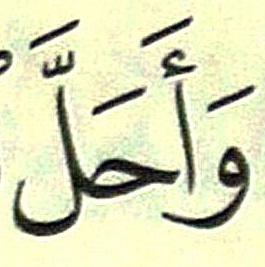 وَأَحَلَّ